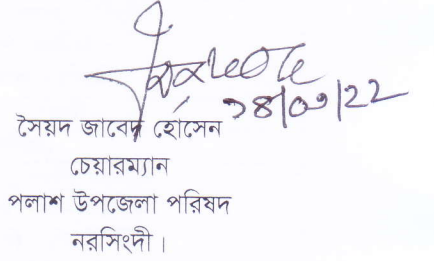 ১৪/০৩/22
সৈয়দ জাবেদ হোসেন
চেয়ারম্যান
পলাশ উপজেলা পরিষদ
নরসিংদী।